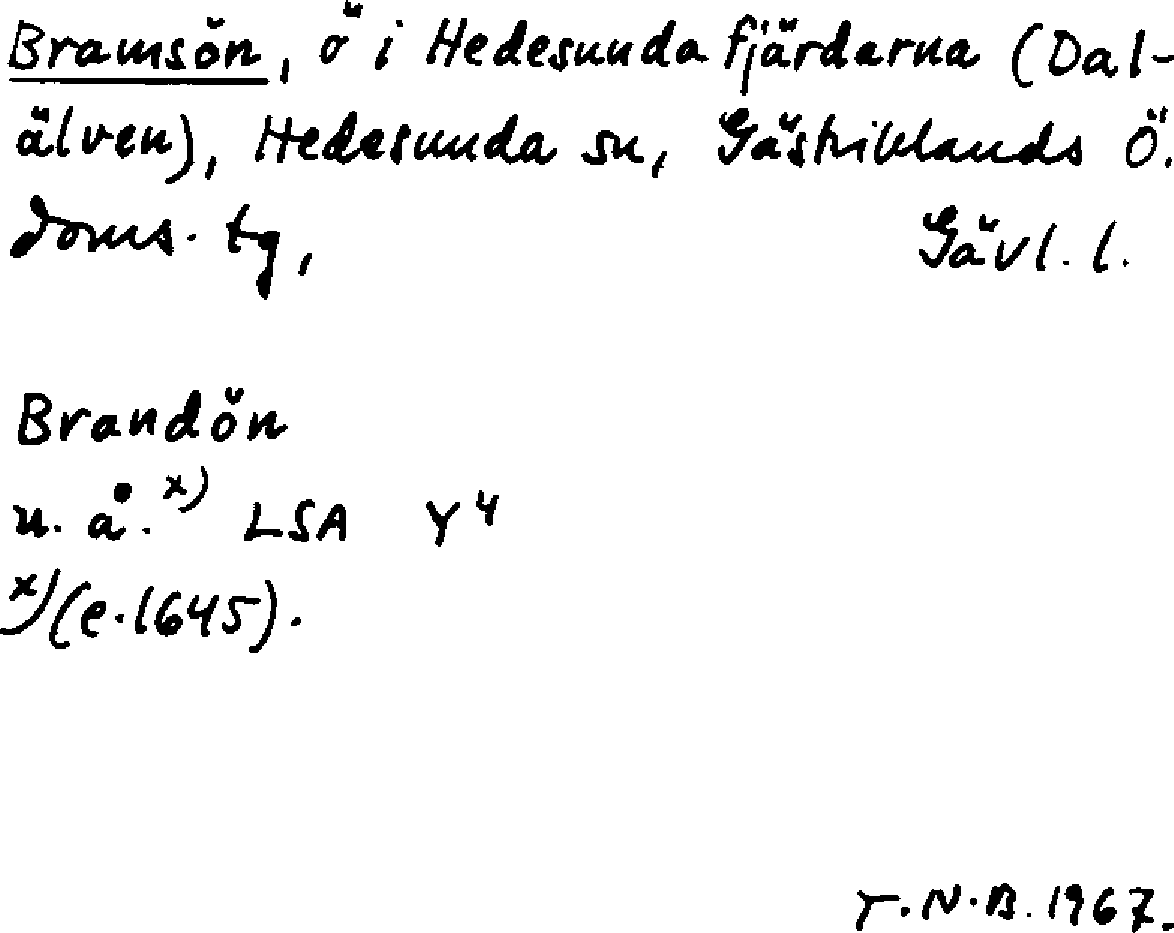 Bramsön, ö i Hedesundafjärdarna (Dal-
älven), Hedesunda sn, Gästriklands Ö.
doms. tg, Gävl. l.
Brandön
u. å. x) LSA Y 4
x) (e. 1645).
T. N. B. 1967.